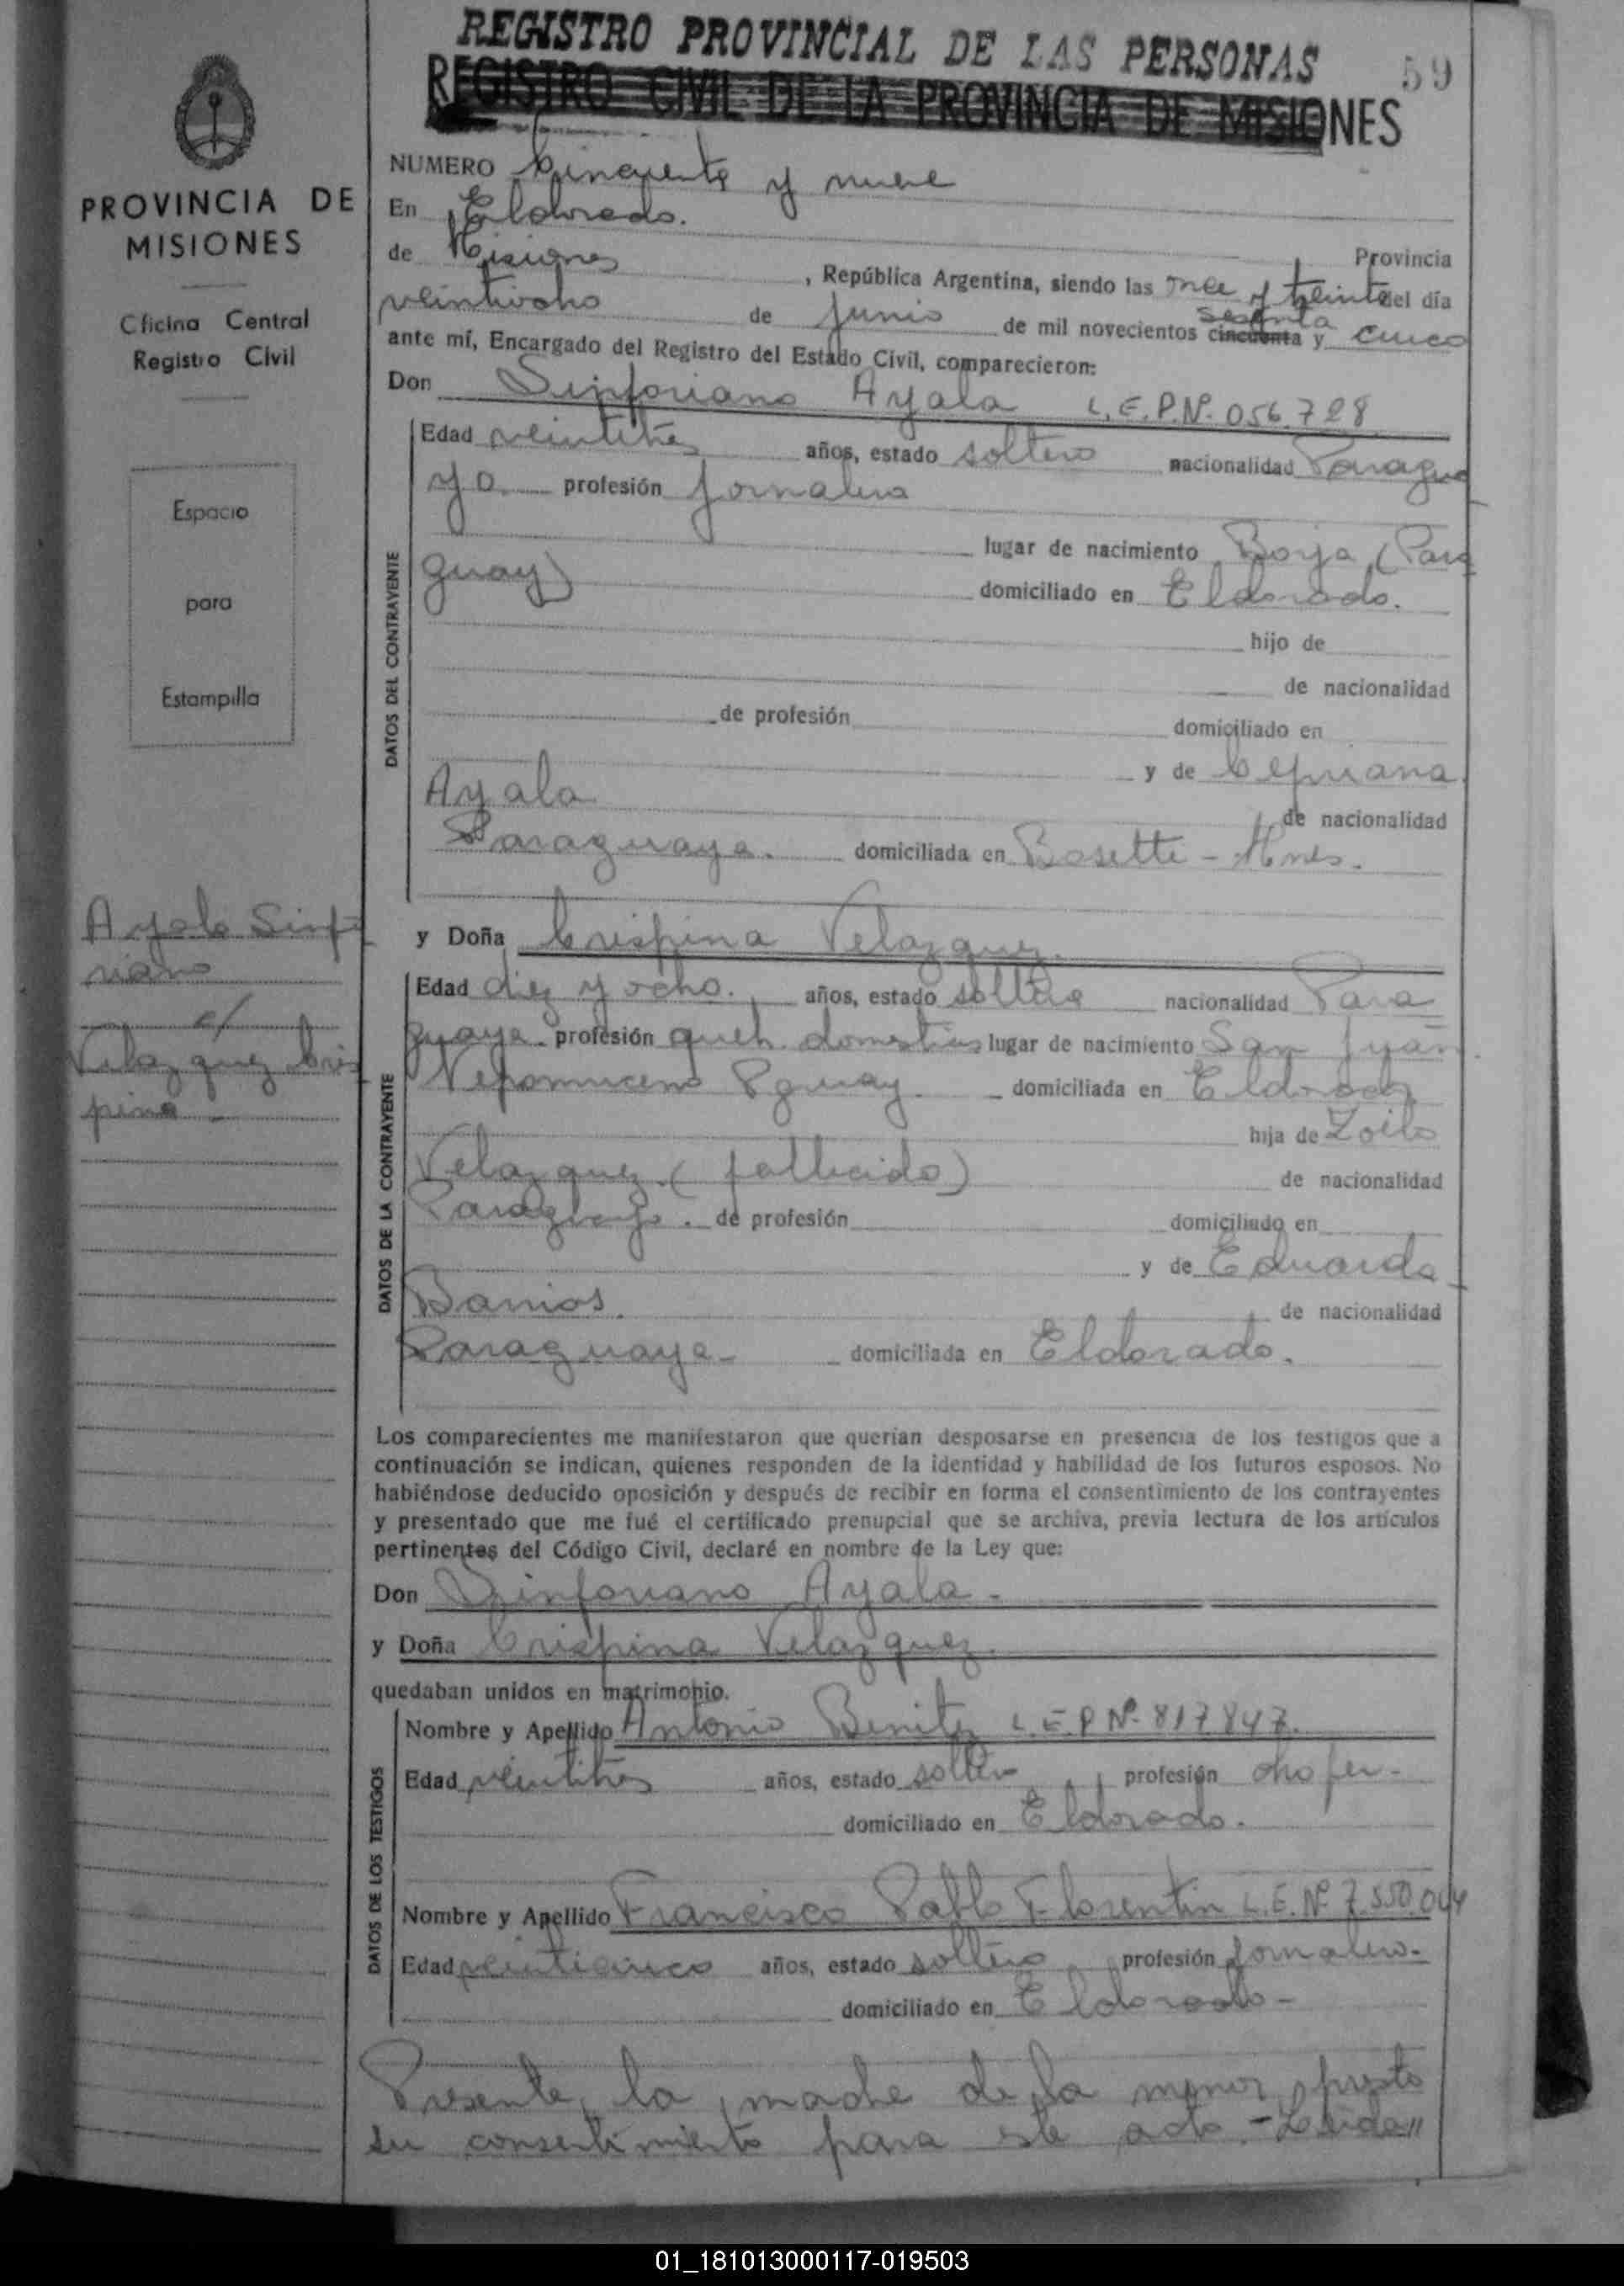 REGISTRO PROVINCIAL DE LAS PERSONAS
59
REGISTRO CIVIL DE LA PROVINCIA DE MISIONES
PROVINCIA DE
MISIONES
Oficina Central
Registro Civil
Espacio
para
Estampilla
Ayala Sinfo
riano
c/
Velazquez Cris
pina
NUMERO Cincuenta y nueve
En Eldorado.
Provincia
de Misiones, República Argentina, siendo las once y treinta del día
veintiocho de junio de mil novecientos cincuenta sesenta y cinco
ante mí, Encargado del Registro del Estado Civil, comparecieron:
Don Sinforiano Ayala L.E.P.Nº 056.728
DATOS DEL CONTRAYENTE
Edad veintitres años, estado soltero nacionalidad Paragua
yo profesión jornalero
lugar de nacimiento Borja (Para
guay) domiciliado en Eldorado.
hijo de
de nacionalidad
de profesión domiciliado en
y de Cepriana
Ayala de nacionalidad
Paraguaya. domiciliada en Bosetti - Mnes.
y Doña Crispina Velazquez.
DATOS DE LA CONTRAYENTE
Edad diez y ocho. años, estado soltera nacionalidad Para
guaya profesión queh. domesticos lugar de nacimiento San Juan
Nepomuceno Pguay. domiciliada en Eldorado
hija de Zoilo
Velazquez (fallecido) de nacionalidad
Paraguayo. de profesión domiciliado en
y de Eduarda
Barrios. de nacionalidad
Paraguaya domiciliada en Eldorado.
Los comparecientes me manifestaron que querían desposarse en presencia de los testigos que a
continuación se indican, quienes responden de la identidad y habilidad de los futuros esposos. No
habiéndose deducido oposición y después de recibir en forma el consentimiento de los contrayentes
y presentado que me fué el certificado prenupcial que se archiva, previa lectura de los artículos
pertinentes del Código Civil, declaré en nombre de la Ley que:
Don Sinforiano Ayala -
y Doña Crispina Velazquez.
quedaban unidos en matrimonio.
DATOS DE LOS TESTIGOS
Nombre y Apellido Antonio Benitez L.E.P Nº 817847.
Edad veintitres años, estado soltero profesión chofer -
domiciliado en Eldorado.
Nombre y Apellido Francisco Pablo Florentin L.E. Nº 7.550.044
Edad veinticinco años, estado soltero profesión jornalero -
domiciliado en Eldorado -
Presente la madre de la menor presto
su consentimiento para este acto - Leida"
01_181013000117-019503